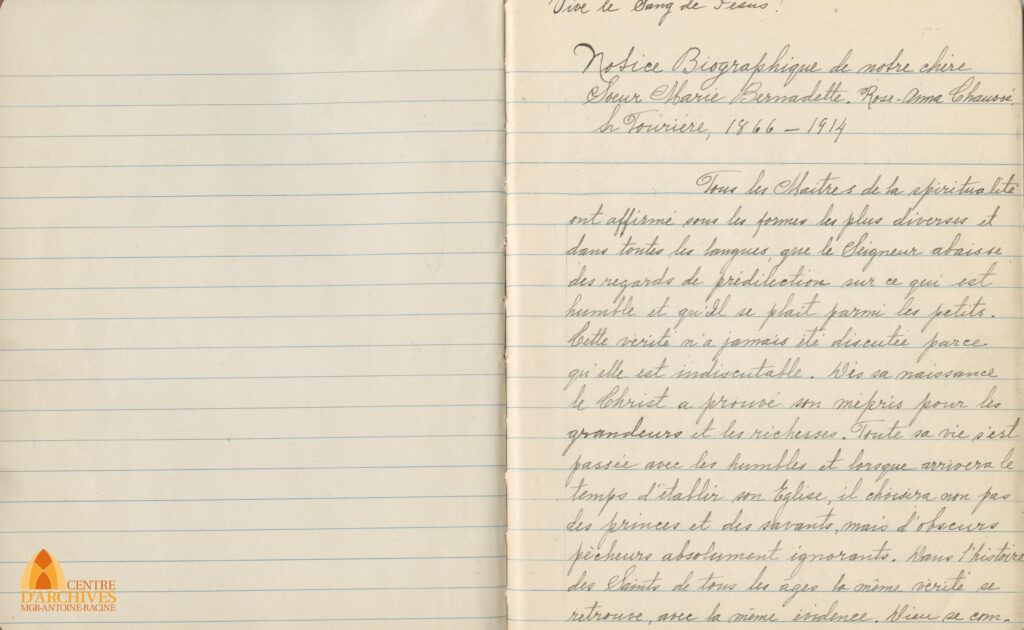 CENTRE
D'ARCHIVES
MGR-ANTOINE-RACINE
Vive le Sang de Jésus !
Notice Biographique de notre chère
Soeur Marie Bernadette. Rose-Anna Chaussé,
Sr Tourière, 1866 – 1914
Tous les Maîtres de la spiritualité
ont affirmé sous les formes les plus diverses et
dans toutes les langues, que le Seigneur abaisse
des regards de prédilection sur ce qui est
humble et qu'Il se plait parmi les petits.
Cette vérité n'a jamais été discutée parce
qu'elle est indiscutable. Dès sa naissance
le Christ a prouvé son mépris pour les
grandeurs et les richesses. Toute sa vie s'est
passée avec les humbles et lorsque arrivera le
temps d'établir son Église, il choisira non pas
des princes et des savants, mais d'obscurs
pêcheurs absolument ignorants. Dans l'histoire
des Saints de tous les âges la même vérité se
retrouve, avec la même évidence. Dieu se com-